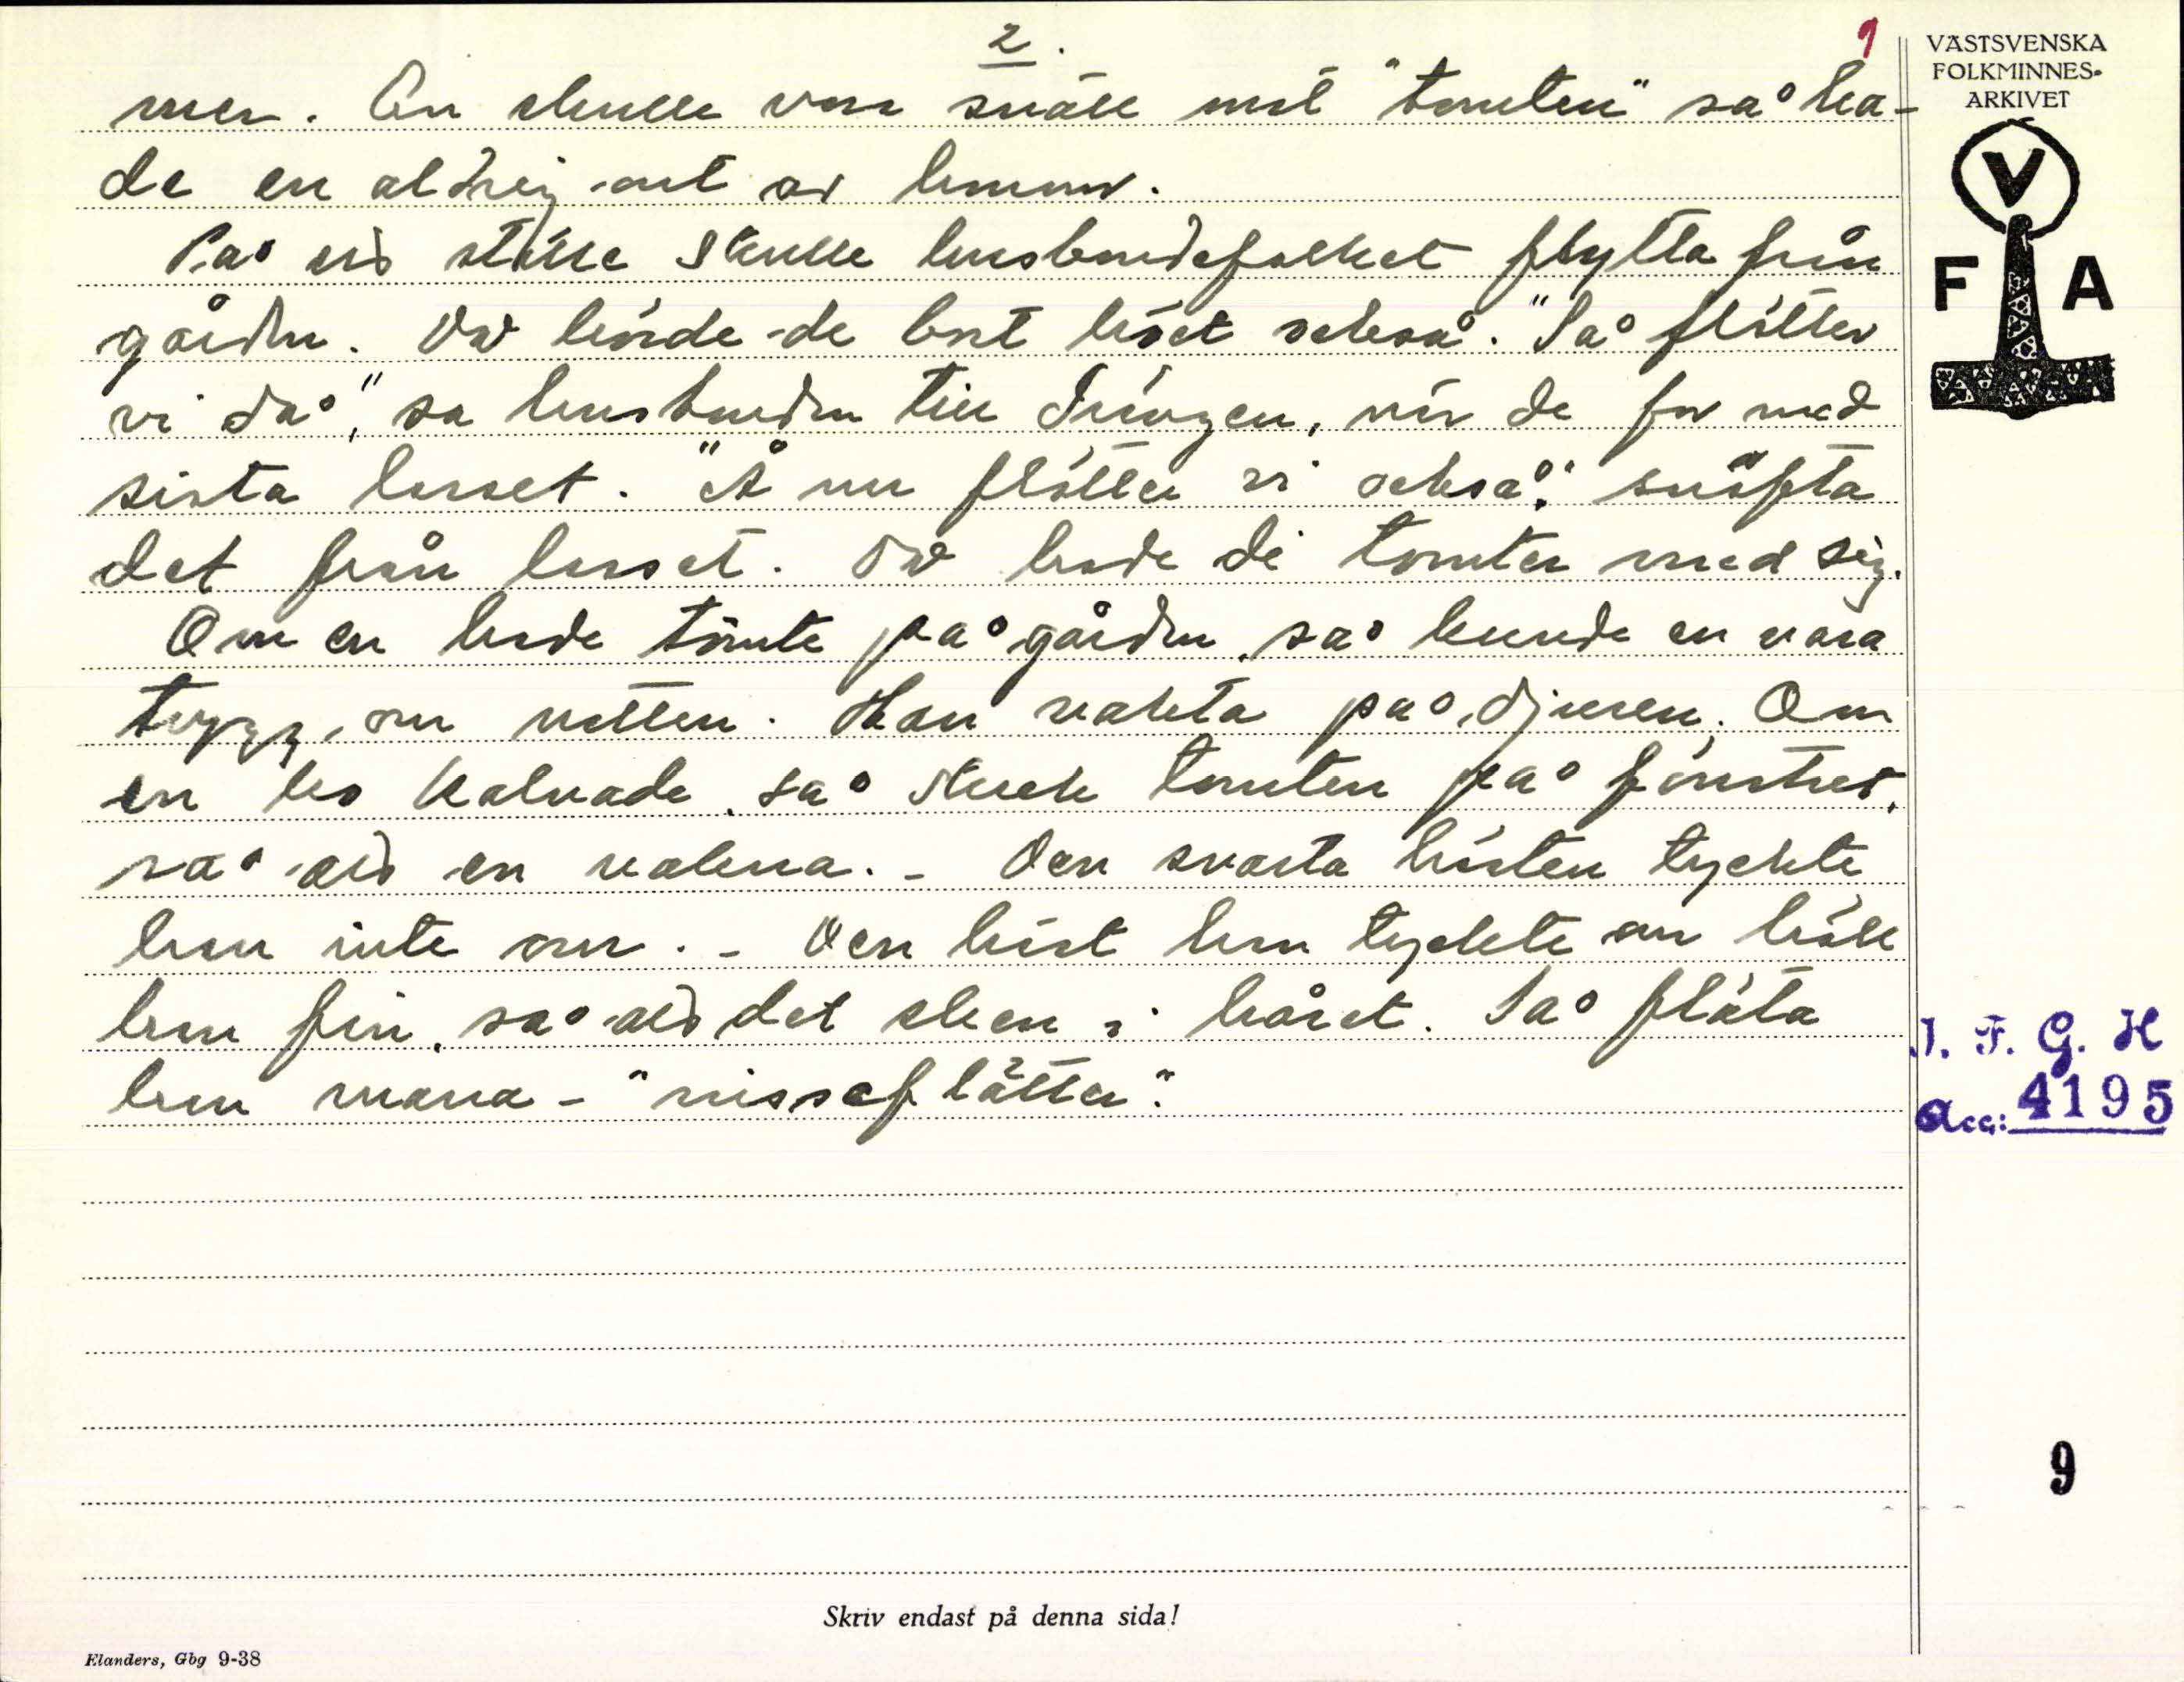 2.
9
VÄSTSVENSKA
FOLKMINNES-
ARKIVET
V
F A
mer. En skulle vara snäll mot "tomten" så ha-
de en aldrig ont av honom.
På ett ställe skulle husbondefolket flytta från
gården. Då körde de bort höet också. "Så flötter
vi då", sa husbonden till drängen, när de for med
sista lasset. "Å nu flötter vi också", snäfsta
det från lasset. Då hade di tomten med sig.
Om en hade tomte på gården, så kunde en vara
trygg om natten. Han vakta på djuren. Om
en ko kalvade, så stack tomten på fönstret,
så att en vakna. - Den svarta hästen tyckte
han inte om. - Den häst han tyckte om höll
han fin, så att det sken i håret. Så fläta
han mana - "nisseflätter".
I. F. G. H
Acc: 4195
9
Skriv endast på denna sida!
Elanders, Gbg 9-38